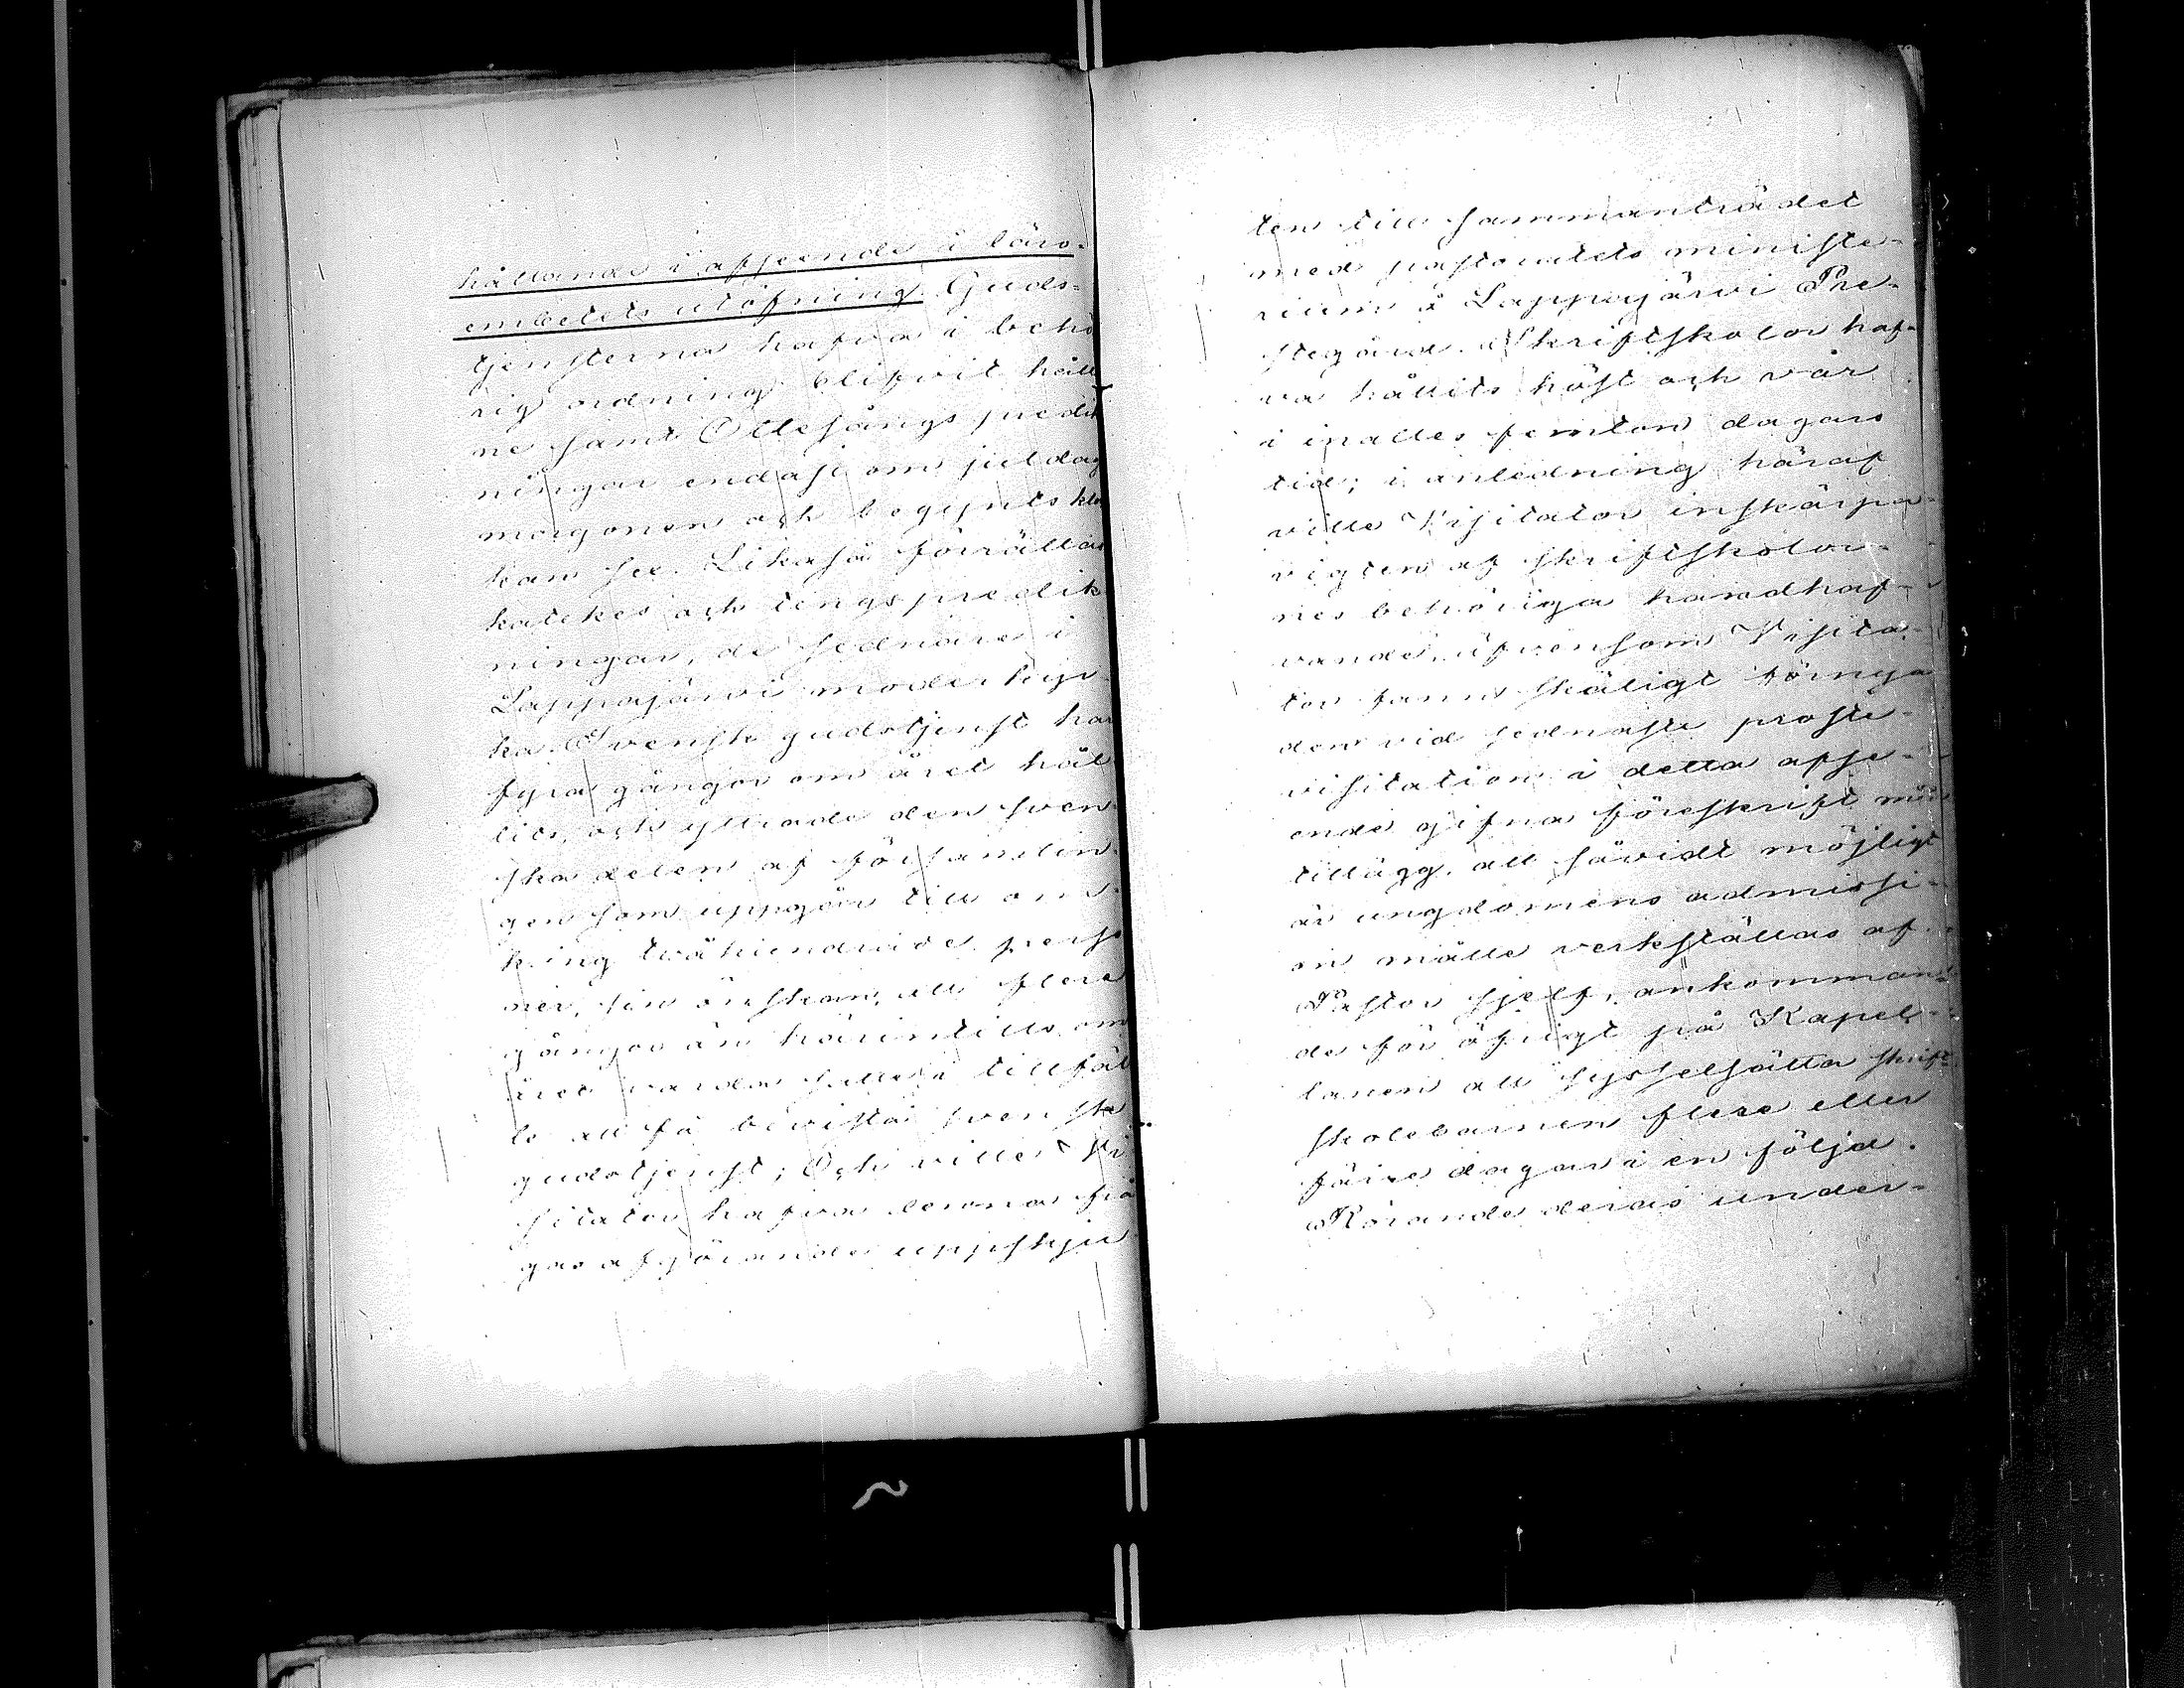 hållande i afseende å läro-
embetets utöfning. Guds-
tjensterna hafva i behö
rig ordning blifvit håll
ne samt Ottesångs predik
ningar endast om juldags
morgonen och begynts kloc
kan sex. Likaså förrättas
katekes och tings predik
ningar, de sednare i
Lappajärvi moderkyr-
ka. Svensk gudstjenst har
fyra gånger om året hål
lits, och yttrade den sven
ska delen af församlin
gen som uppgår till om
kring tvåhundrade perso
ner, sin önskan, att flere
gånger än härintills om
året varda satte i tillfäl
le att få bevista svensk
gudstjenst; Och ville Vi
sitator hafva denna frå
gas afgörande uppskju
ten till sammanträdet
med pastoratets ministe-
rium å Lappajärvi Pre-
stegård. Skriftskolor haf-
va hållits höst och vår
i inalles femton dagars
tid; i anledning häraf
ville Visitator inskärpa
vigten af skriftskolor-
nes behöriga handhaf-
vande, äfvensom Visita-
tor fann skäligt förnya
den vid sednaste proste-
visitation i detta afse-
ende gifna föreskrift med
tillägg, att såvidt möjligt
är ungdomens admissi-
on måtte verkställas af
Pastor sjelf, ankomman-
de för öfrigt på Kapel-
lanen att sysselsätta skrift-
skolebarnen flere eller
färre dagar i en följd.
Rörande deras under-